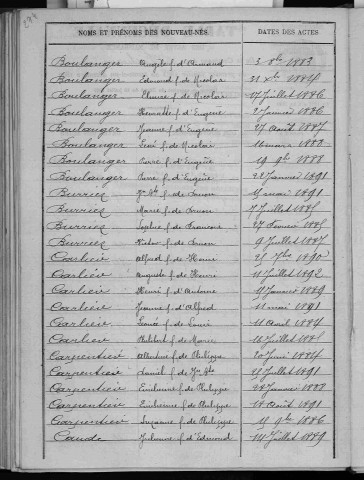 NOMS ET PRÉNOMS DES NOUVEAU-NÉS. DATES DES ACTES
Boulanger Angèle f. d'Armand 3 8bre 1883
Boulanger Edmond f. de Nicolas 21 1884
Boulanger f. de Nicolas 17 Juillet 1886
Boulanger Henriette f. d'Eugène 2 Janvier 1886
Boulanger Jeanne f. d'Eugène 27 Août 1887
Boulanger f. de Nicolas 16 mars 1888
Boulanger Pierre f. d'Eugène 19 9bre 1888
Boulanger Pierre f. d'Eugène 22 Janvier 1891
Burrier f. de 1 mai 1891
Burrier Marie f. de 7 Juillet 1885
Burrier f. de François 27 Février 1885
Burrier f. de 9 Juillet 1887
Carlier Alfred f. de Henri 25 7bre 1890
Carlier Auguste f. de Henri 11 Juillet 1892
Carlier Henri f. d'Antoine 9 Janvier 1889
Carlier Jeanne f. d'Alfred 11 mai 1891
Carlier Louis f. de Louis 11 Avril 1884
Carlier f. de 16 Juillet 1885
Carpentier Albertine f. de Philippe 20 Juin 1884
Carpentier f. de 23 Juillet 1891
Carpentier f. de Philippe 28 Janvier 1888
Carpentier f. de Philippe 18 Août 1891
Carpentier Suzanne f. de Philippe 19 9bre 1886
Caude f. d'Edmond 14 Juillet 1889